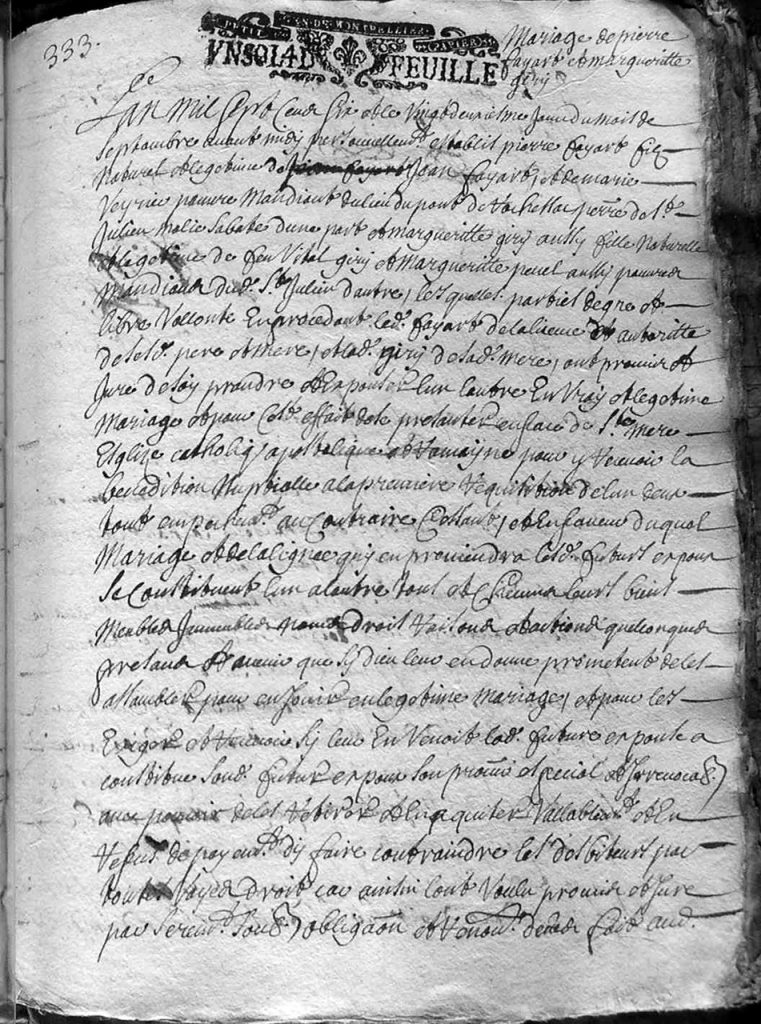 333.
GEN. DE MONTPELLIER
VN SOL 4 D FEUILLE
Mariage de pierre
fayart et margueritte
giry
L'an mil sept cens six et le vingt deuxiesme Jour du mois de
septembre avant midy personnellemt establis pierre fayart filz
Naturel et legetime de Jean fayart, et de marie
Veyrie pauvre Mandiant du lieu du pont de de St
Julien d'une part et margueritte giry aussy fille Naturelle
et legetime de feu Vital giry et Margueritte aussy pauvres
Mandians dud. St Julien d'autre, lesquelles parties de gre et
libre Vollonte En procedant led. fayart de la licence et authoritte
de sesd. pere et mere, et lad. giry de sad. mere, ont promis et
Jure de soy prandre et Espouser l'un l'autre En Vray et legetime
Mariage et pour Cest effait de se presanter en face de Ste mere
Esglize catholiq, apostolique et Romayne pour y recevoir la
benedition Nuptialle a la premiere requisition de l'un deux
tout empechemt au Contraire Cessant, et En faveur duquel
Mariage et de la lignee quy en proviendra lesd. futurs espoux
se Constituent l'un a l'autre tous et Chacuns leurs biens
Meubles Jmmeubles droits raisons et actions quelconques
presans et avenir que sy dieu leur en donne prometent de les
assambler pour en Jouir en legetime Mariage, et pour les
Exiger et recevoir sy leur En Venoit lad. future espouse a
constitue sond. futur espoux son procur. special et Jrrevocable
avec pouvoir de les retirer et En quiter Vallablemt et En
refus de payemt d'y faire contraindre les debiteurs par
toutes voyes droit car ainsin l'ont Voulu promis et Jure
par seremt soubz obligaon et renonc. de fait aud.